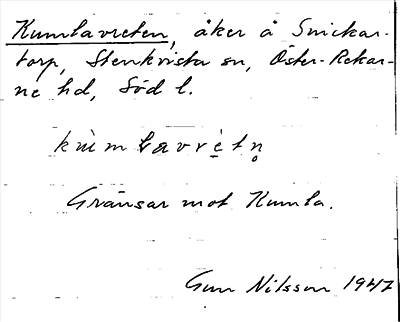 Kumlavreten, åker å Snickar-
torp, Stenkvista sn, Öster-Rekar-
ne hd, Söd l.
kùmlavrètn̥
Gränsar mot Kumla.
Gun Nilsson 1947